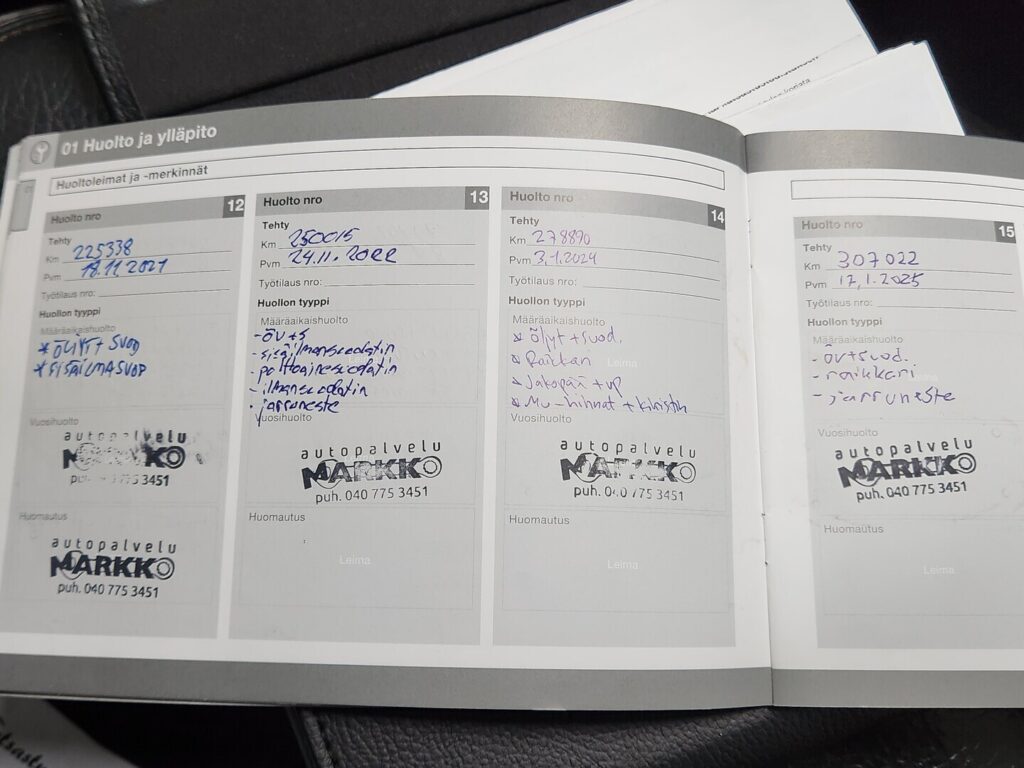 01 Huolto ja ylläpito
Huoltoleimat ja -merkinnät
Huolto nro 12
Tehty
Km 225338
Pvm 18.11 2021
Työtilaus nro:
Huollon tyyppi
Määräaikaishuolto
* ÖLJYT + SUOD
* SISÄILMASUOD
Vuosihuolto
autopalvelu
MARKKO
3451
Huomautus
autopalvelu
MARKKO
puh. 040 775 3451
Huolto nro 13
Tehty
Km 250015
Pvm 24.11. 2022
Työtilaus nro:
Huollon tyyppi
Määräaikaishuolto
- öv+s
- sisäilmansuodatin
- polttoainesuodatin
- ilmansuodatin
- jarruneste
Vuosihuolto
autopalvelu
MARKKO
puh. 040 775 3451
Huomautus
Leima
Huolto nro 14
Tehty
Km 278890
Pvm 3.1.2024
Työtilaus nro:
Huollon tyyppi
Määräaikaishuolto
* Öljyt + suod.
* Raikkari
* Jakopää + vp
* Mu-hihnat + kiristin
Leima
Vuosihuolto
autopalvelu
MARKKO
puh. 040 775 3451
Huomautus
Leima
Huolto nro 15
Tehty
Km 307022
Pvm 17.1.2025
Työtilaus nro:
Huollon tyyppi
Määräaikaishuolto
- öv+suod.
- raikkari
- jarruneste
Vuosihuolto
autopalvelu
MARKKO
puh. 040 775 3451
Huomautus
Leima